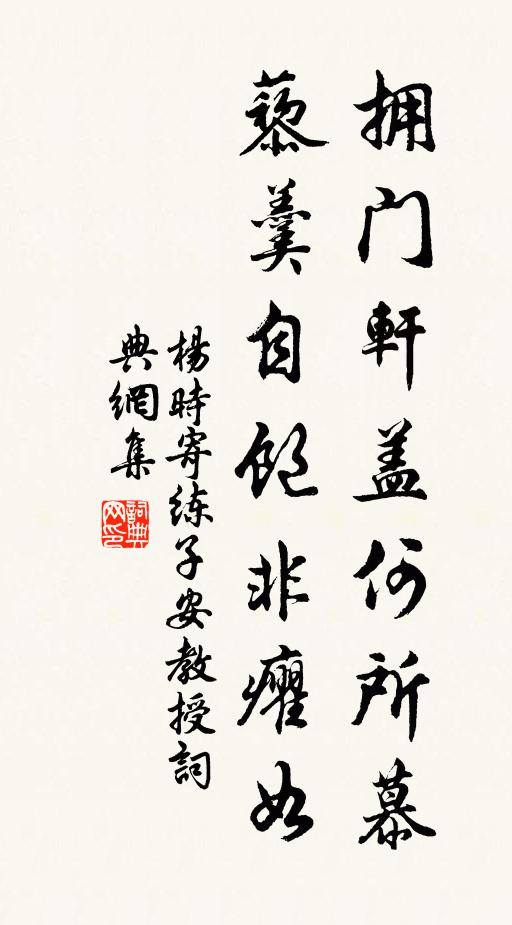 拥门軒盖何所慕
藜羹自飽非癯如
楊時寄练子安教授詞
典網集
詞典
网印